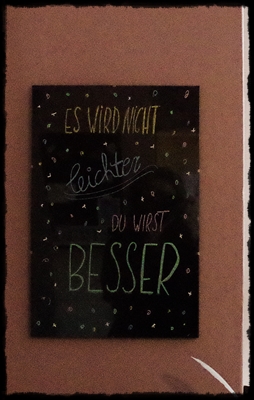 ES WIRD NICHT
leichter
DU WIRST
BESSER